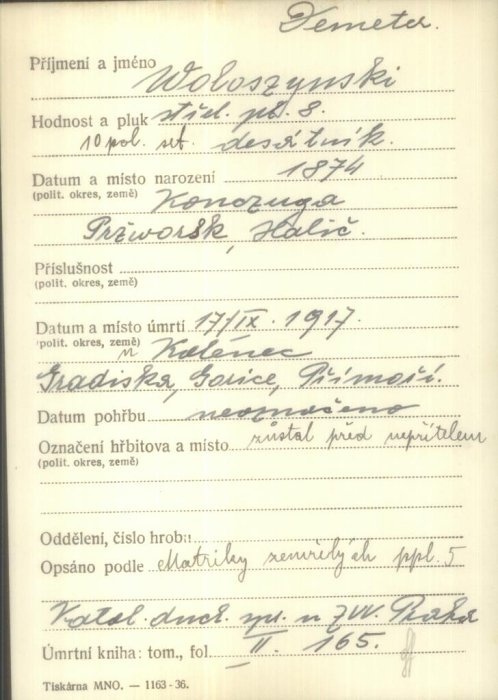 Demeter.
Příjmení a jméno
Woloszynski
Hodnost a pluk střel. pl. 8.
10 pol. set. desátník.
Datum a místo narození 1874
(polit. okres, země) Konczuga
Pržworsk, Halič.
Příslušnost
(polit. okres, země)
Datum a místo úmrtí 17/IX. 1917.
(polit. okres, země) u Kolénec
Gradiska, Gorice, Přímoří.
Datum pohřbu neoznačeno
Označení hřbitova a místo zůstal před nepřítelem
(polit. okres, země)
Oddělení, číslo hrobu
Opsáno podle Matriky zemřelých ppl. 5
Katol. duch. spr. u ZVV. Praha
Úmrtní kniha: tom., fol. II. 165.
Tiskárna MNO. — 1163-36.